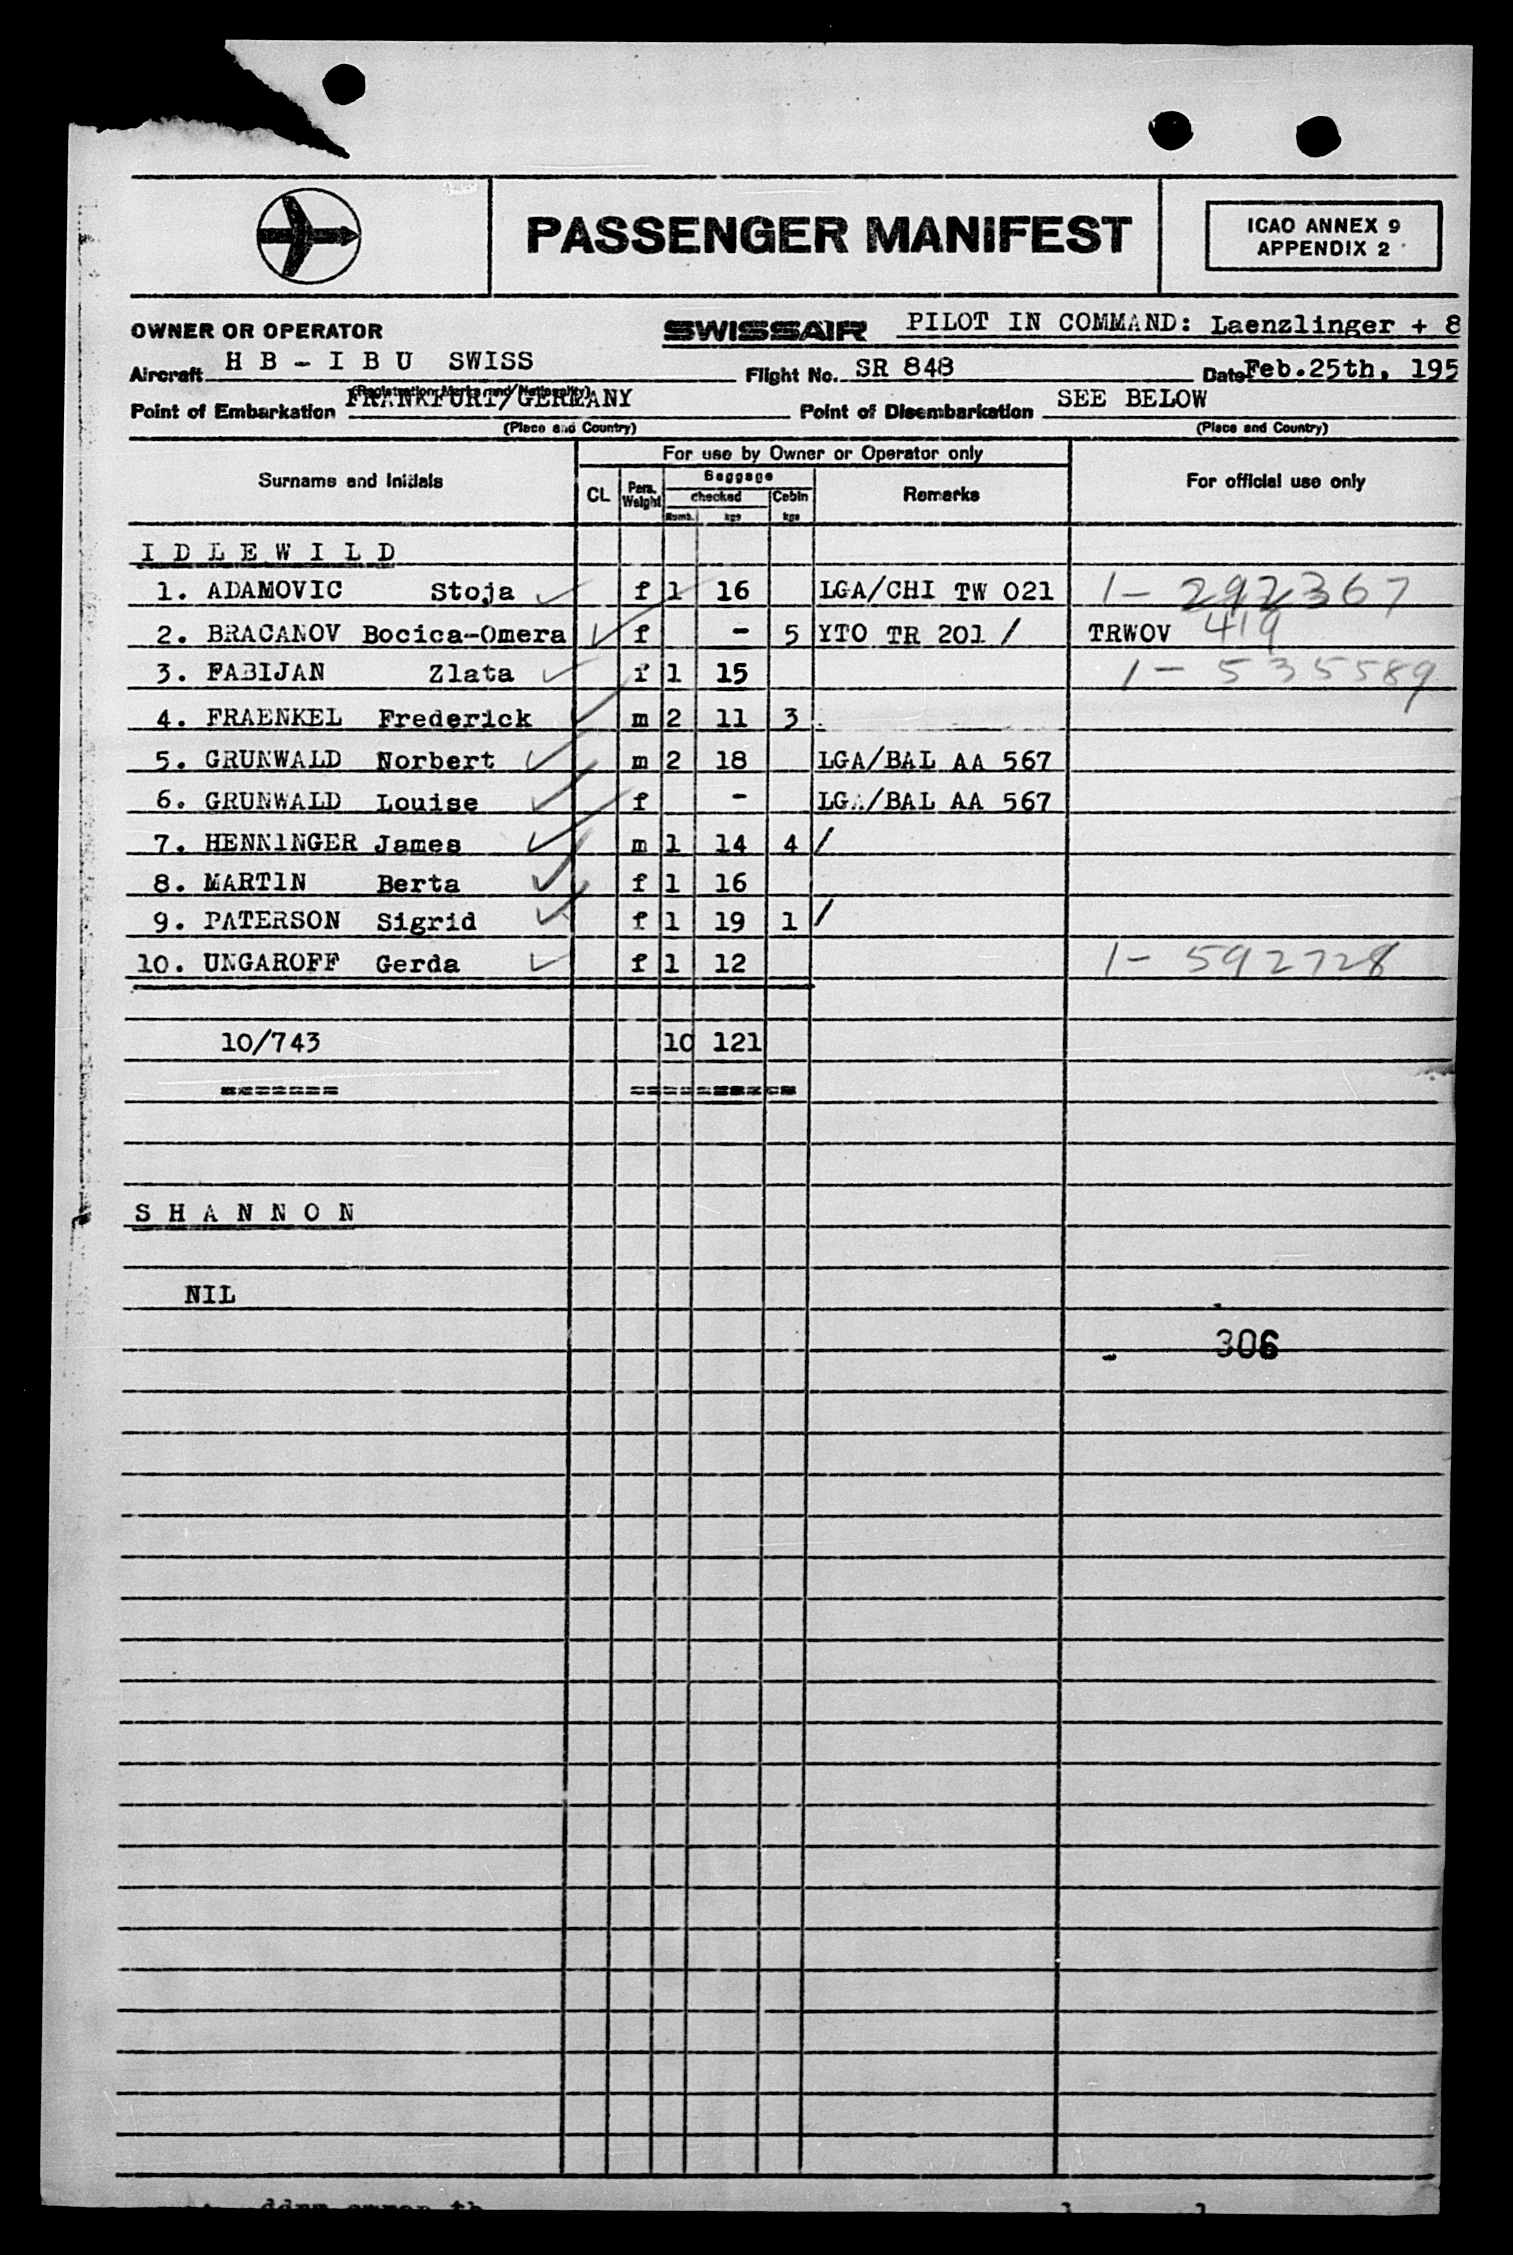 PASSENGER MANIFEST
ICAO ANNEX 9
APPENDIX 2
OWNER OR OPERATOR SWISSAIR PILOT IN COMMAND: Laenzlinger + 8
Aircraft H B - I B U SWISS Flight No. SR 848 Date Feb.25th, 195
(Registration Marks and Nationality)
Point of Embarkation FRANKFURT/GERMANY Point of Disembarkation SEE BELOW
(Place and Country) (Place and Country)
For use by Owner or Operator only
Surname and Initials CL Pers. Weight Baggage checked Numb. kgs Cabin kgs Remarks For official use only
I D L E W I L D
1. ADAMOVIC Stoja f 1 16 LGA/CHI TW 021 1- 292367
2. BRACANOV Bocica-Omera f - 5 YTO TR 201 / TRWOV 419
3. FABIJAN Zlata f 1 15 1- 535589
4. FRAENKEL Frederick m 2 11 3
5. GRUNWALD Norbert m 2 18 LGA/BAL AA 567
6. GRUNWALD Louise f - LGA/BAL AA 567
7. HENN1NGER James m 1 14 4 /
8. MART1N Berta f 1 16
9. PATERSON Sigrid f 1 19 1 /
10. UNGAROFF Gerda f 1 12 1- 592728
10/743 10 121
======= ==========
S H A N N O N
NIL
306